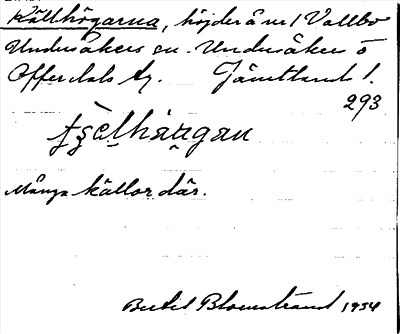 Källhögarna, höjder å nr 1 Vallbo
Undersåkers sn. Undersåkers o
Offerdals tg. Jämtland l.
293
Många källor där.
Bertil Blomstrand 1934